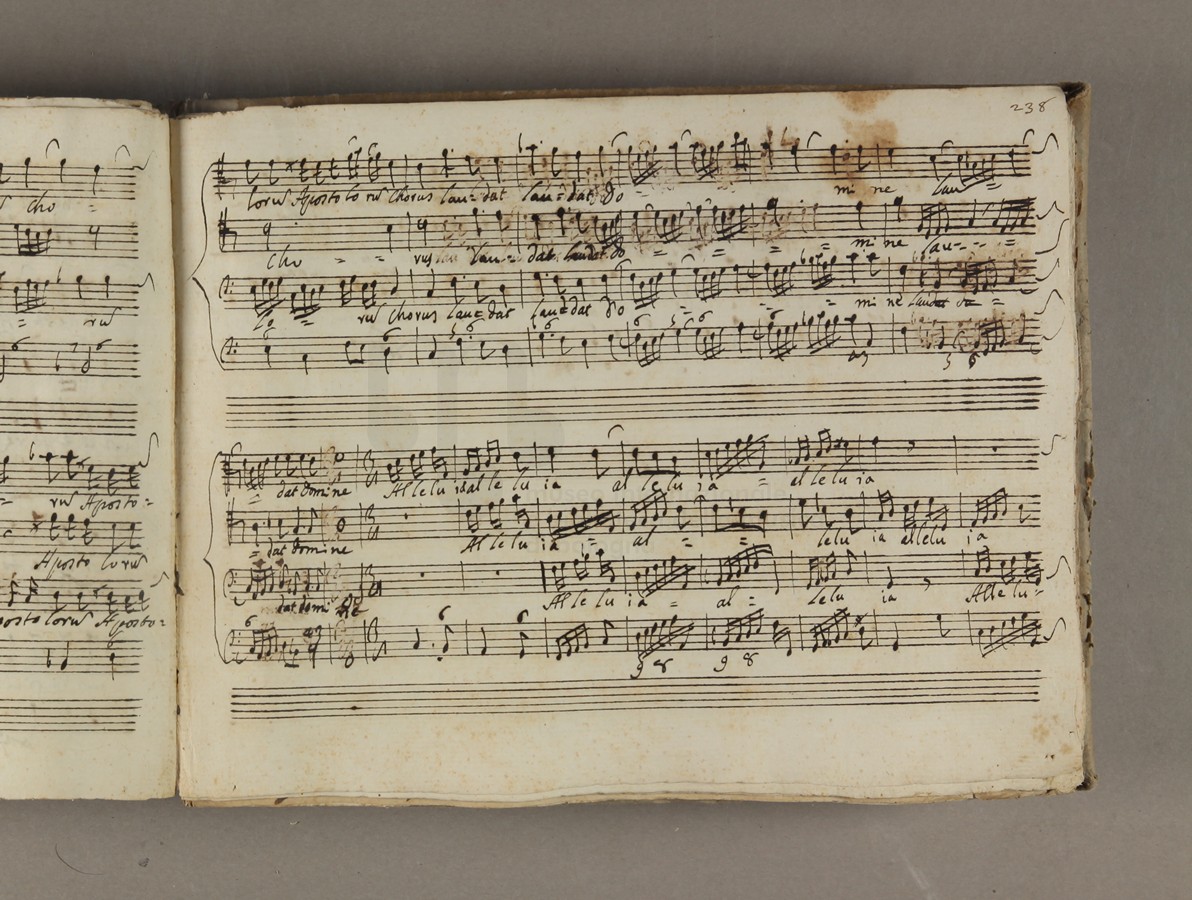 238
cho -
rū
rū Aposto=
Aposto lorū
posto lorū Aposto=
lorū Aposto lo rū Chorus lau= dat lau= dat Do mi ne lau =
cho = = rus lau= dat laudat do = = = mi ne lau - - =
lo = rū Chorus lau= dat lau= dat Do = = mi ne laudat
6 6 5 6 6 6 5 6 6 5 6
= dat domine Al le lu ia al le lu ia al le lu ia = al le lu ia
= dat domine Al le lu ia = al = = le lu ia allelu ia
dat domi ne Al le lu ia = al = le lu ia Alle lu=
6 6 6 9 8 9 8